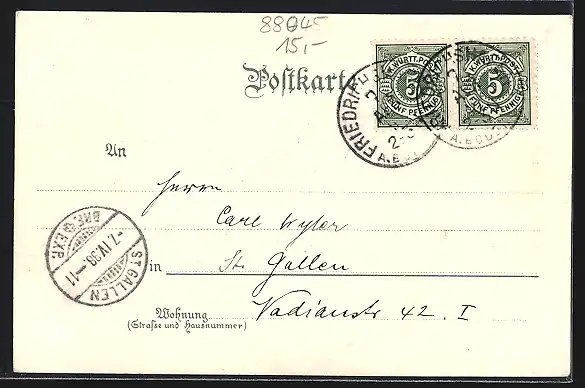 88045
15,-
Postkarte
K. WÜRTT. POST
5
FÜNF PFENNIG
K. WÜRTT. POST
5
FÜNF PFENNIG
FRIEDRICHS
A.BOD
An
Herrn
Carl Wyler
in St. Gallen
Wohnung Vadianstr 42. I
(Straße und Hausnummer)
ST. GALLEN
-7.IV.98.-11
BRF. EXP.